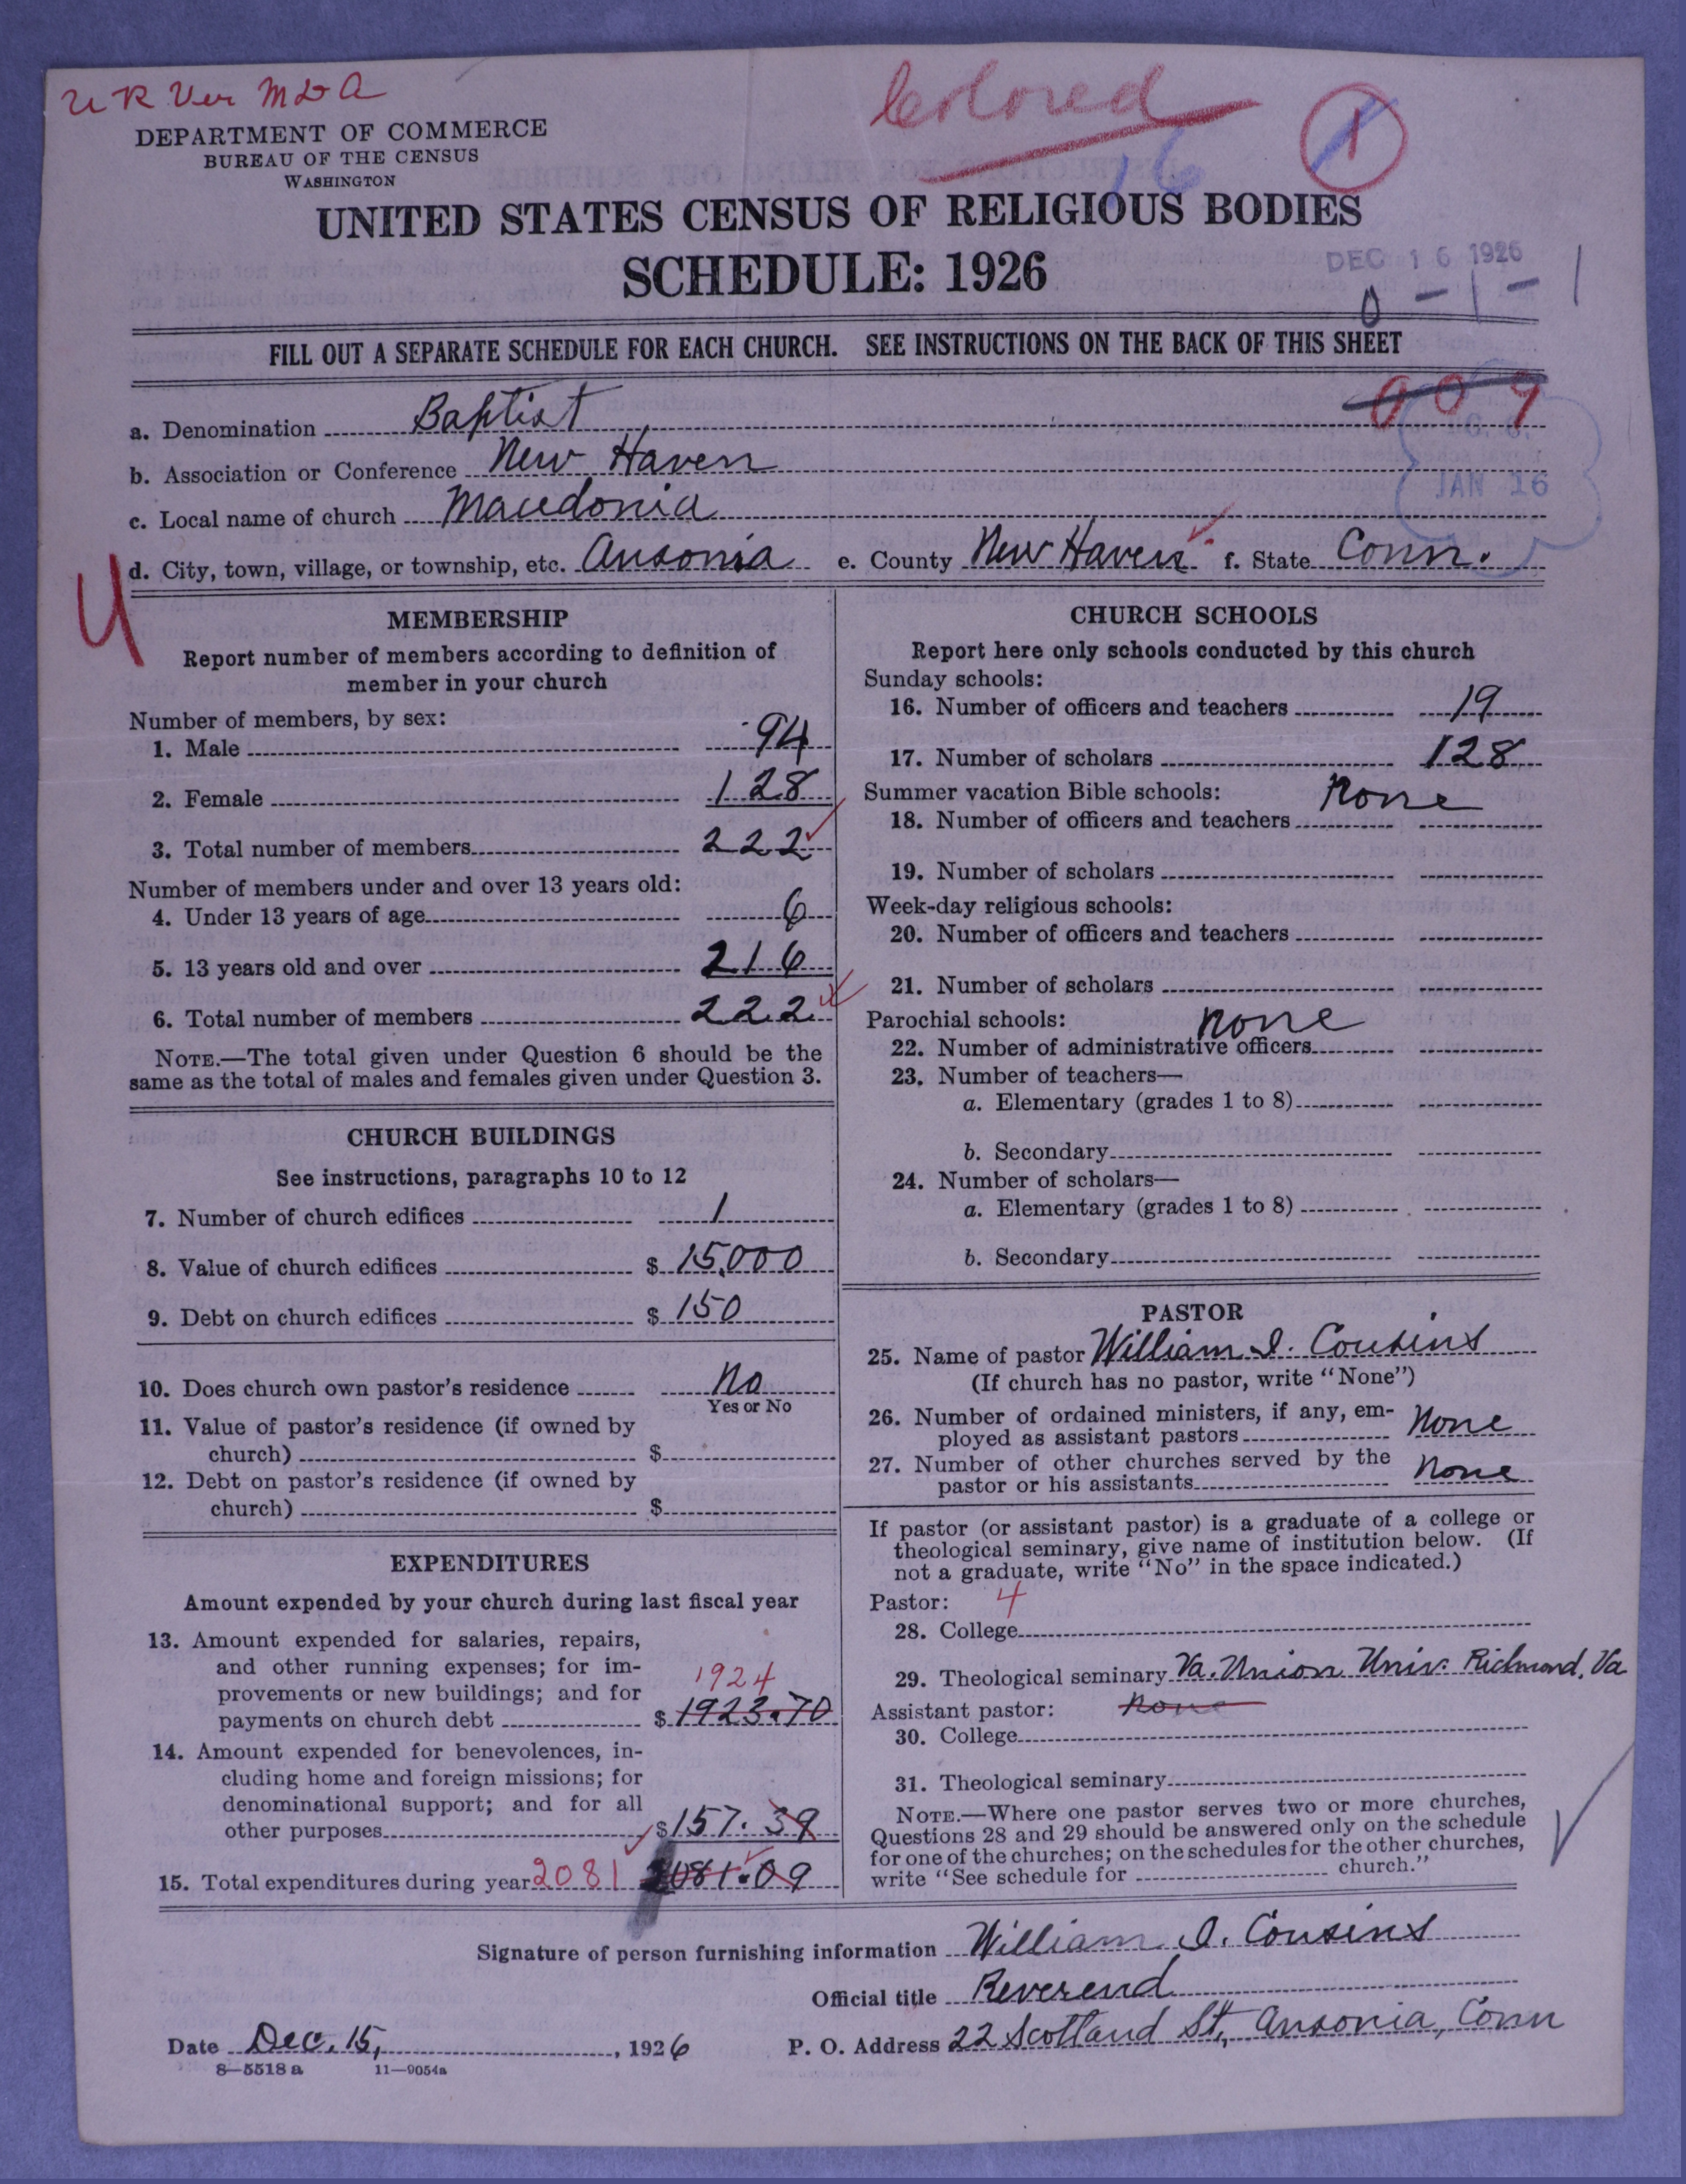 U R Ver M & A
Colored
1
16
DEPARTMENT OF COMMERCE
BUREAU OF THE CENSUS
WASHINGTON
UNITED STATES CENSUS OF RELIGIOUS BODIES
SCHEDULE: 1926
DEC 16 1926
0 – 1 – 1
FILL OUT A SEPARATE SCHEDULE FOR EACH CHURCH. SEE INSTRUCTIONS ON THE BACK OF THIS SHEET
009
a. Denomination Baptist
b. Association or Conference New Haven
JAN 16
c. Local name of church Macedonia
d. City, town, village, or township, etc. Ansonia e. County New Haven f. State Conn.
4
MEMBERSHIP
Report number of members according to definition of
member in your church
Number of members, by sex:
1. Male 94
2. Female 128
3. Total number of members 222
Number of members under and over 13 years old:
4. Under 13 years of age 6
5. 13 years old and over 216
6. Total number of members 222
NOTE.—The total given under Question 6 should be the
same as the total of males and females given under Question 3.
CHURCH BUILDINGS
See instructions, paragraphs 10 to 12
7. Number of church edifices 1
8. Value of church edifices $ 15,000
9. Debt on church edifices $ 150
10. Does church own pastor's residence No
Yes or No
11. Value of pastor's residence (if owned by
church) $
12. Debt on pastor's residence (if owned by
church) $
EXPENDITURES
Amount expended by your church during last fiscal year
13. Amount expended for salaries, repairs,
and other running expenses; for im-
provements or new buildings; and for
1924
payments on church debt $ 1923.70
14. Amount expended for benevolences, in-
cluding home and foreign missions; for
denominational support; and for all
other purposes $ 157.39
15. Total expenditures during year 2081 2081.09
CHURCH SCHOOLS
Report here only schools conducted by this church
Sunday schools:
16. Number of officers and teachers 19
17. Number of scholars 128
Summer vacation Bible schools: None
18. Number of officers and teachers
19. Number of scholars
Week-day religious schools:
20. Number of officers and teachers
21. Number of scholars
Parochial schools: None
22. Number of administrative officers
23. Number of teachers—
a. Elementary (grades 1 to 8)
b. Secondary
24. Number of scholars—
a. Elementary (grades 1 to 8)
b. Secondary
PASTOR
25. Name of pastor William I. Cousins
(If church has no pastor, write "None")
26. Number of ordained ministers, if any, em-
ployed as assistant pastors None
27. Number of other churches served by the
pastor or his assistants None
If pastor (or assistant pastor) is a graduate of a college or
theological seminary, give name of institution below. (If
not a graduate, write "No" in the space indicated.)
Pastor: 4
28. College
29. Theological seminary Va. Union Univ. Richmond, Va
Assistant pastor: None
30. College
31. Theological seminary
NOTE.—Where one pastor serves two or more churches,
Questions 28 and 29 should be answered only on the schedule
for one of the churches; on the schedules for the other churches,
write "See schedule for church."
Signature of person furnishing information William I. Cousins
Official title Reverend
Date Dec. 15, , 1926 P. O. Address 22 Scotland St., Ansonia, Conn
8—5518 a 11—9054a